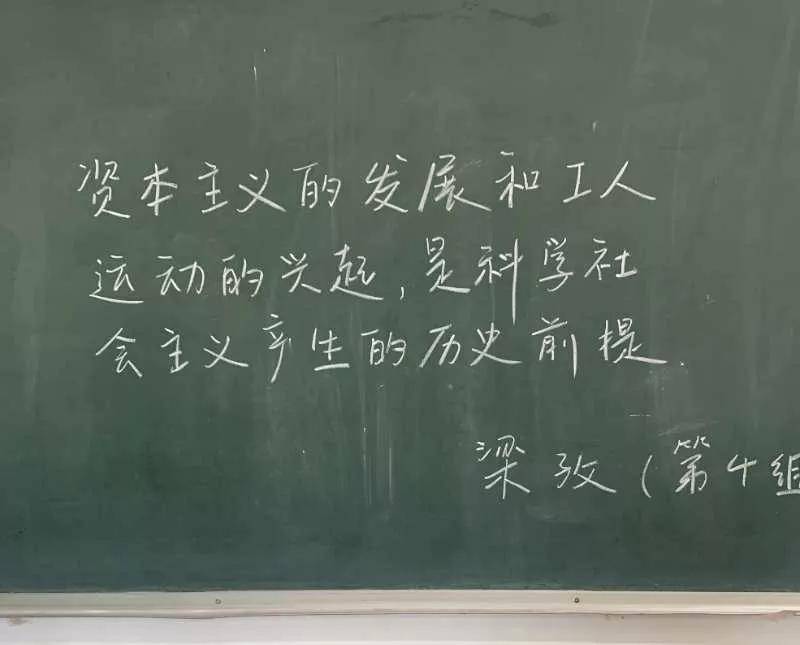 资本主义的发展和工人
运动的兴起,是科学社
会主义产生的历史前提
梁孜(第4组